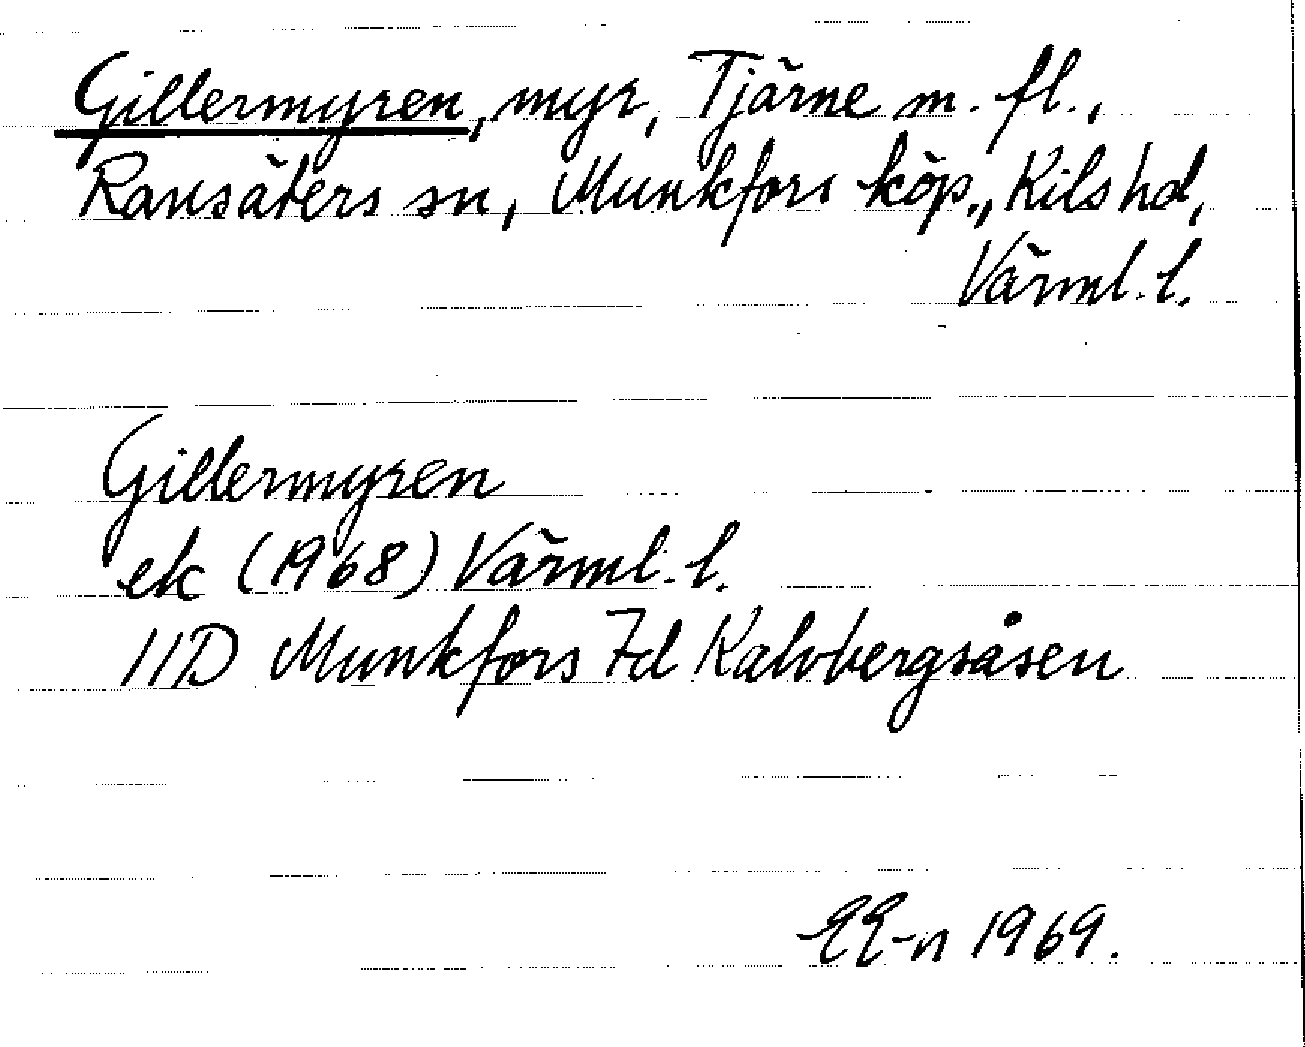 Gillermyren, myr, Tjärne m. fl.,
Ransäters sn, Munkfors köp., Kils hd,
Värml. l.
Gillermyren
ek (1968) Värml. l.
11D Munkfors 7d Kalvbergsåsen
EE-n 1969.